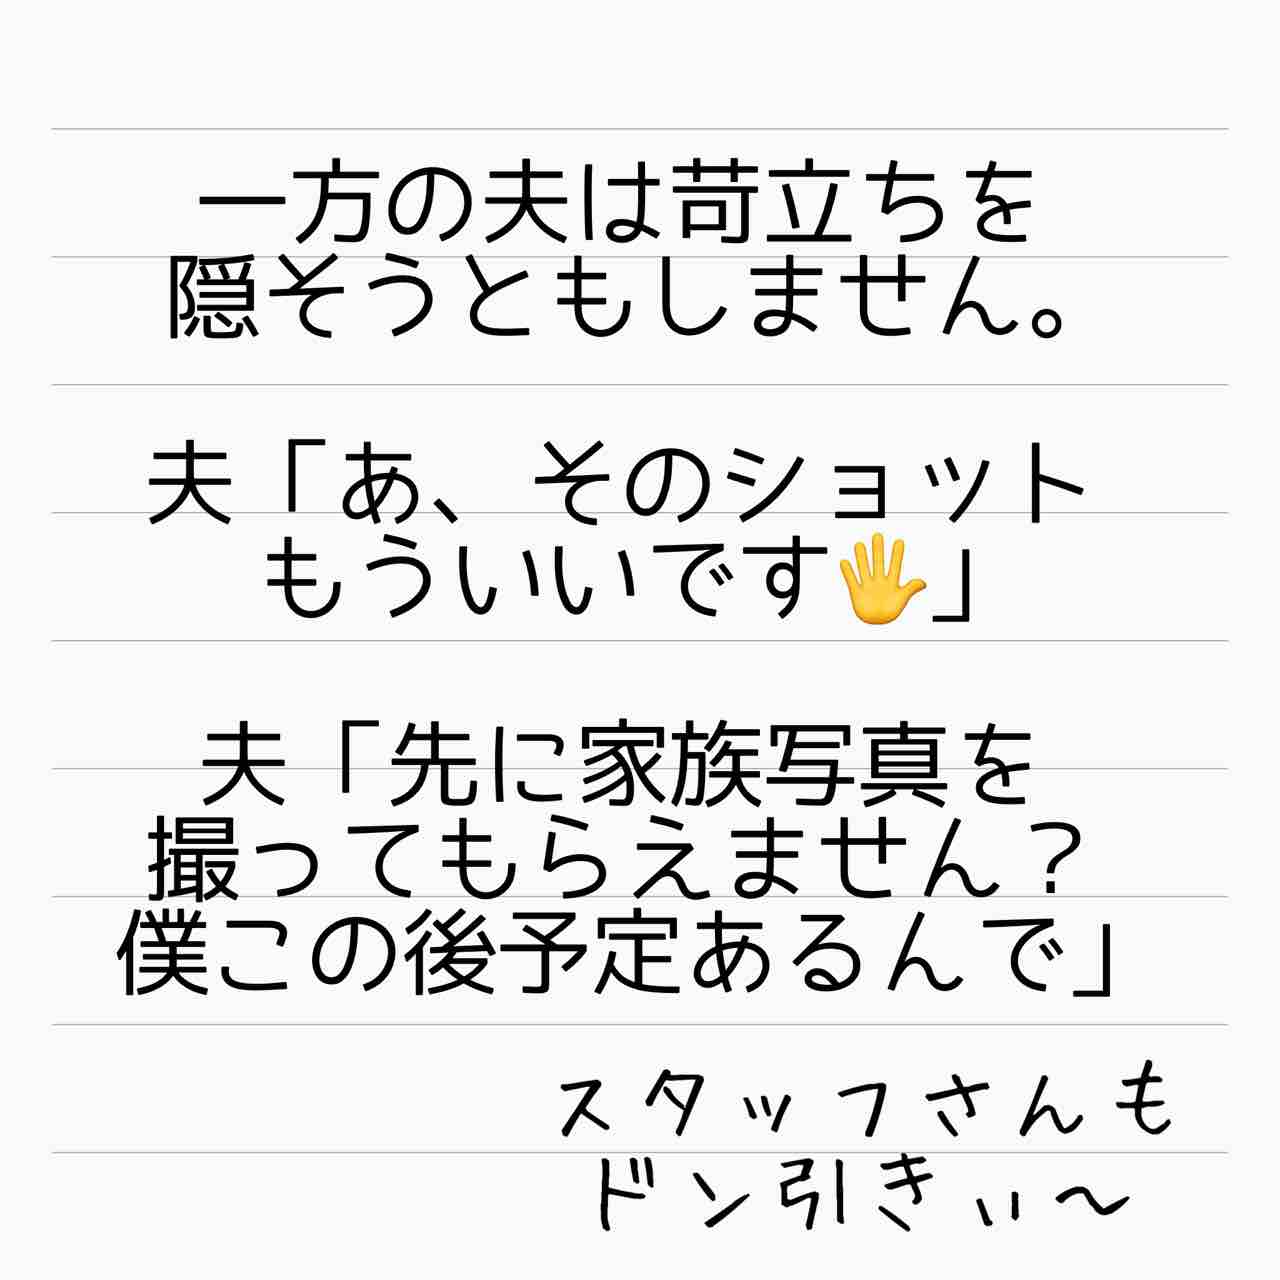 一方の夫は苛立ちを
隠そうともしません。
夫「あ、そのショット
もういいです🖐️」
夫「先に家族写真を
撮ってもらえません？
僕この後予定あるんで」
スタッフさんも
ドン引きぃ〜